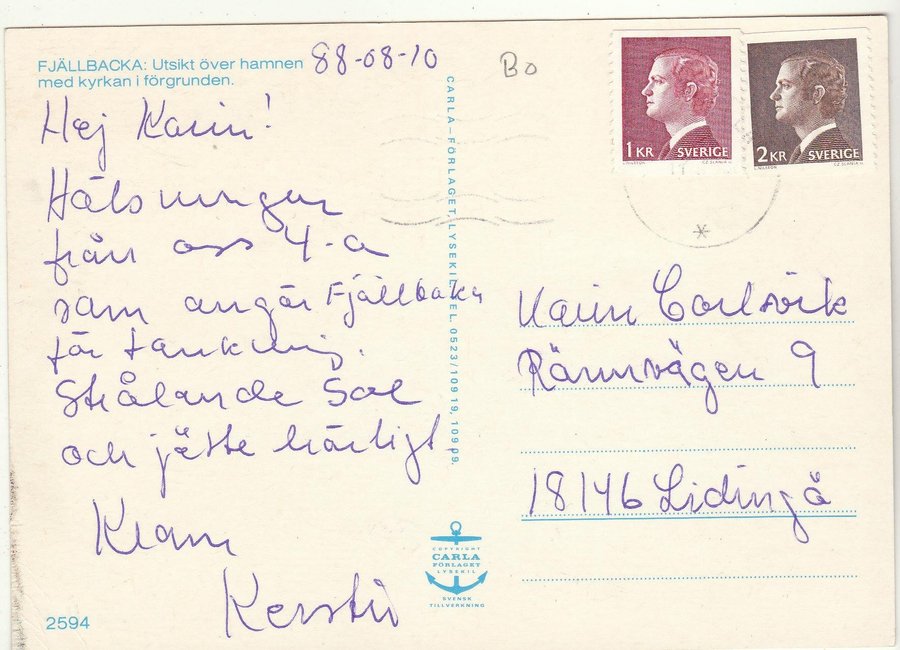 FJÄLLBACKA: Utsikt över hamnen
med kyrkan i förgrunden.
88-08-10
Bo
Hej Karin!
Hälsningar
från oss 4-a
som angör Fjällbaka
för tankning.
Strålande Sol
och jätte härligt
Kram
Kerstin
2594
CARLA-FÖRLAGET, LYSEKIL. TEL. 0523/109 19, 109 09.
COPYRIGHT
CARLA
FÖRLAGET
LYSEKIL
SVENSK
TILLVERKNING
1 KR SVERIGE
2 KR SVERIGE
Karin Carlsvik
Rännvägen 9
18146 Lidingö